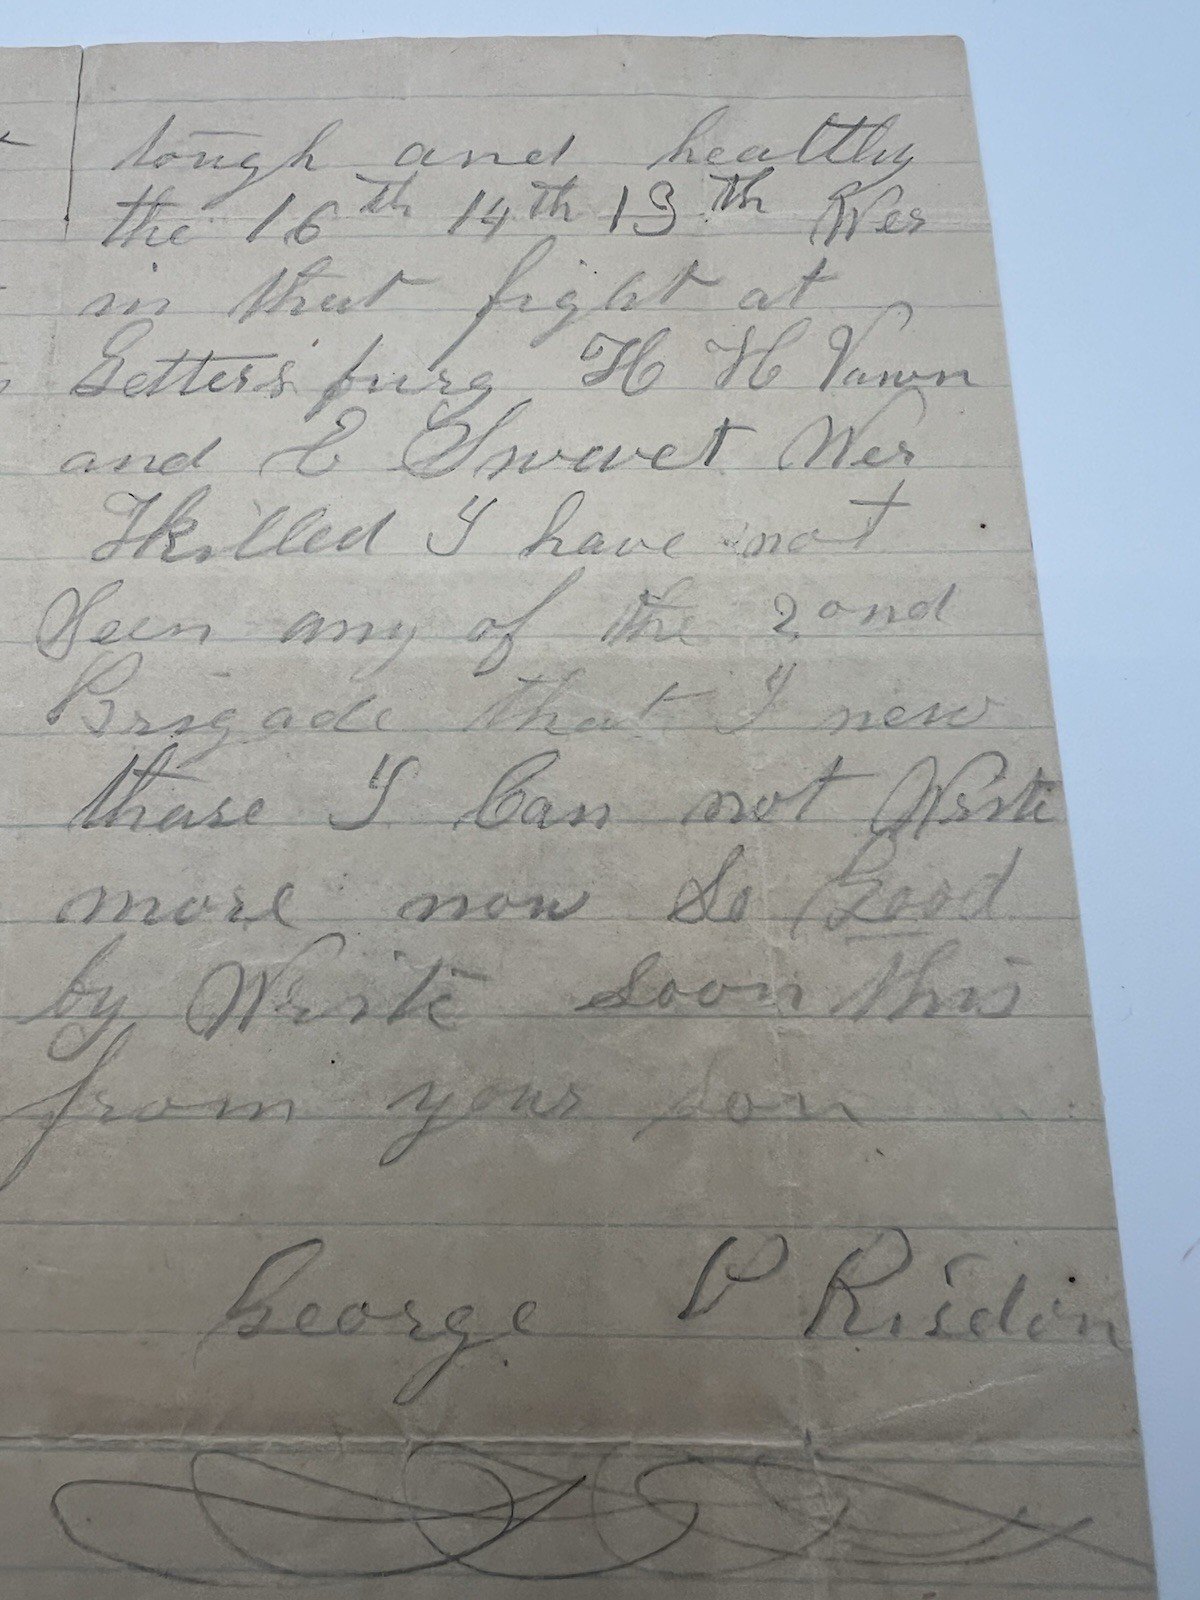 tough and healthy
the 16th 14th 13th Wer
in that fight at
Getters burg H H
and E Wer
killed I have not
Seen any of the 2ond
Brigade that I new
those I Can not Write
more now So Good
by Write Soon this
from your son
George P Risdon